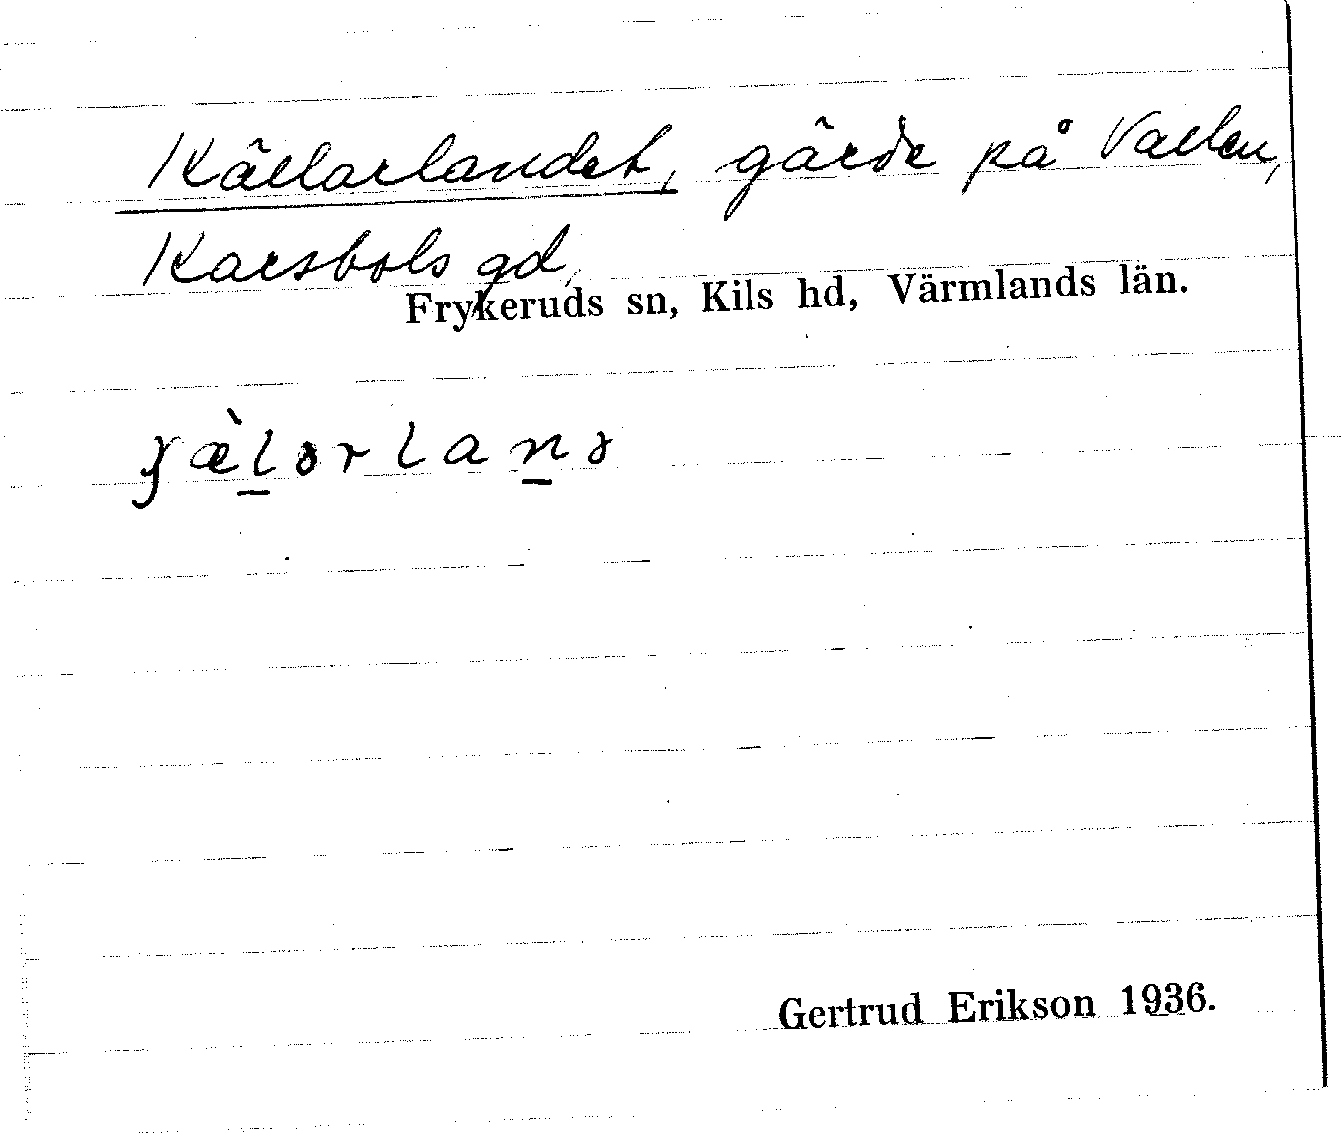 Källarlandet, gärde på Vallen,
Karsbols gd,
Frykeruds sn, Kils hd, Värmlands län.
Gertrud Erikson 1936.